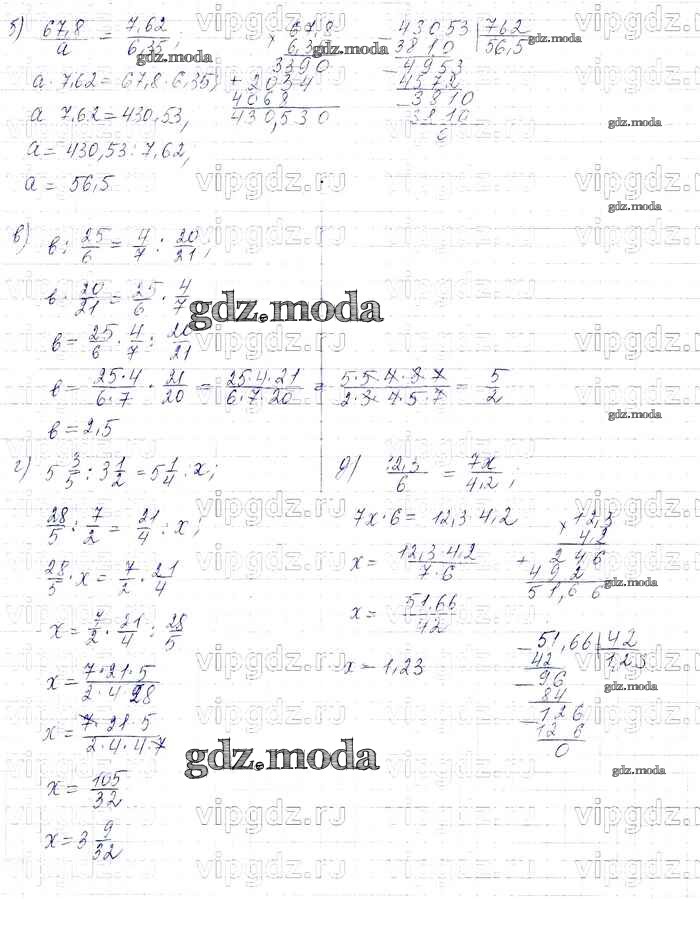 б) 67,8/a = 7,62/6,35;
a · 7,62 = 67,8 · 6,35;
a 7,62 = 430,53,
a = 430,53 : 7,62,
a = 56,5
× 67,8
6,35
3390
+ 2034
4068
430,530
− 43053 | 762
3810 56,5
− 4953
4572
− 3810
3810
0
в) в : 25/6 = 4/7 : 20/21;
в · 20/21 = 25/6 · 4/7
в = 25/6 · 4/7 : 20/21
в = 25·4/6·7 · 21/20 = 25·4·21/6·7·20 = 5·5·4·3·7/2·3·4·5·7 = 5/2
в = 2,5
г) 5 3/5 : 3 1/2 = 5 1/4 : x;
28/5 : 7/2 = 21/4 : x;
28/5 · x = 7/2 · 21/4
x = 7/2 · 21/4 : 28/5
x = 7·21·5/2·4·28
x = 7·21·5/2·4·4·7
x = 105/32
x = 3 9/32
д) 12,3/6 = 7x/4,2;
7x · 6 = 12,3 · 4,2
x = 12,3·4,2/7·6
x = 51,66/42
x = 1,23
× 12,3
4,2
+ 246
492
51,66
− 51,66 | 42
42 1,23
− 96
84
− 126
126
0
vipgdz.ru
gdz.moda